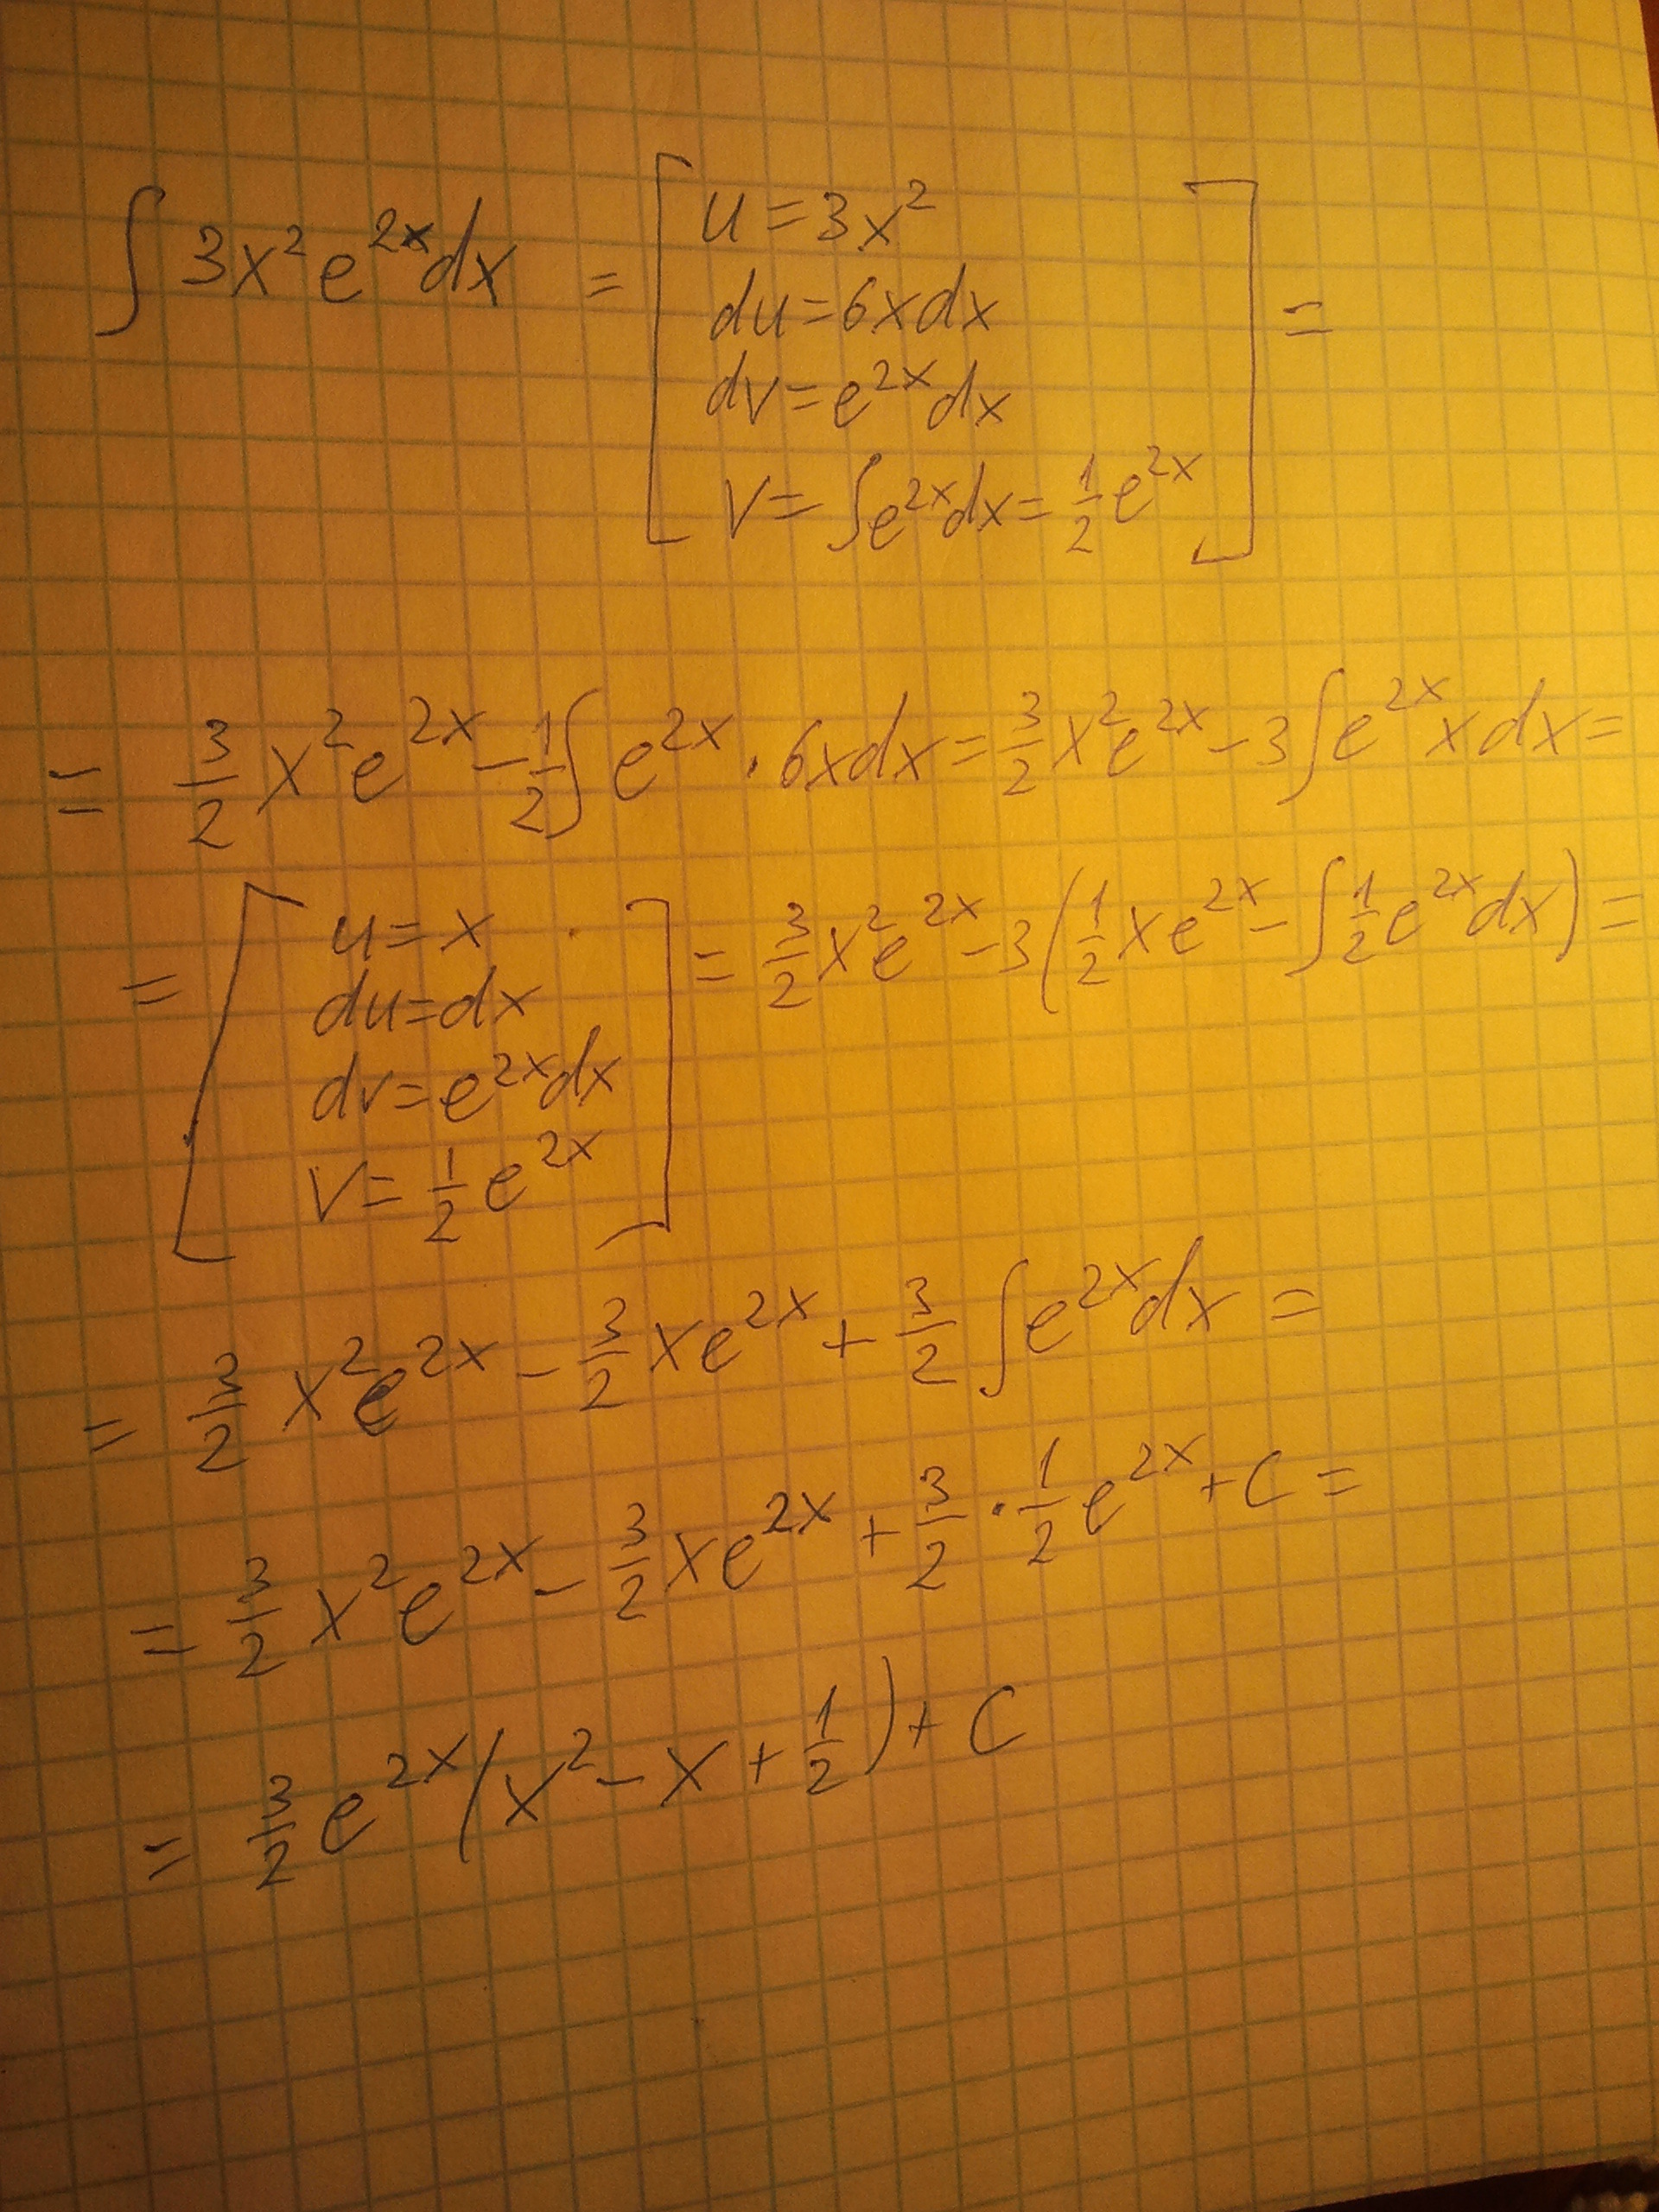 ∫ 3x² e^{2x} dx = [ u = 3x²
du = 6x dx
dv = e^{2x} dx
v = ∫ e^{2x} dx = 1/2 e^{2x} ] =
= 3/2 x² e^{2x} - 1/2 ∫ e^{2x} · 6x dx = 3/2 x² e^{2x} - 3 ∫ e^{2x} x dx =
= [ u = x
du = dx
dv = e^{2x} dx
v = 1/2 e^{2x} ] = 3/2 x² e^{2x} - 3 ( 1/2 x e^{2x} - ∫ 1/2 e^{2x} dx ) =
= 3/2 x² e^{2x} - 3/2 x e^{2x} + 3/2 ∫ e^{2x} dx =
= 3/2 x² e^{2x} - 3/2 x e^{2x} + 3/2 · 1/2 e^{2x} + C =
= 3/2 e^{2x} ( x² - x + 1/2 ) + C